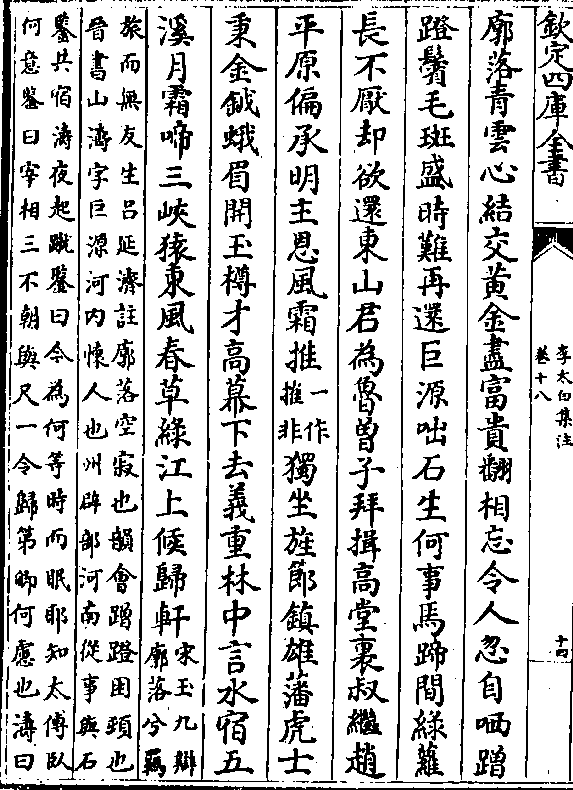 欽定四庫全書
李太白集注
卷十八
十四
廓落青雲心結交黃金盡富貴翻相忘令人忽自哂蹭
蹬鬢毛斑盛時難再還巨源咄石生何事馬蹄間綠蘿
長不厭却欲還東山君為魯曾子拜揖高堂裏叔繼趙
平原偏承明主恩風霜推一作摧非獨坐旌節鎮雄藩虎士
秉金鉞蛾眉開玉樽才高幕下去義重林中言水宿五
溪月霜啼三峽猿東風春草綠江上候歸軒宋玉九辯廓落兮羈
旅而無友生呂延濟註廓落空寂也韻會蹭蹬困頓也
晉書山濤字巨源河內懷人也州辟部河南從事與石
鑒共宿濤夜起蹴鑒曰今為何等時而眠耶知太傅臥
何意鑒曰宰相三不朝與尺一令歸第卿何慮也濤曰